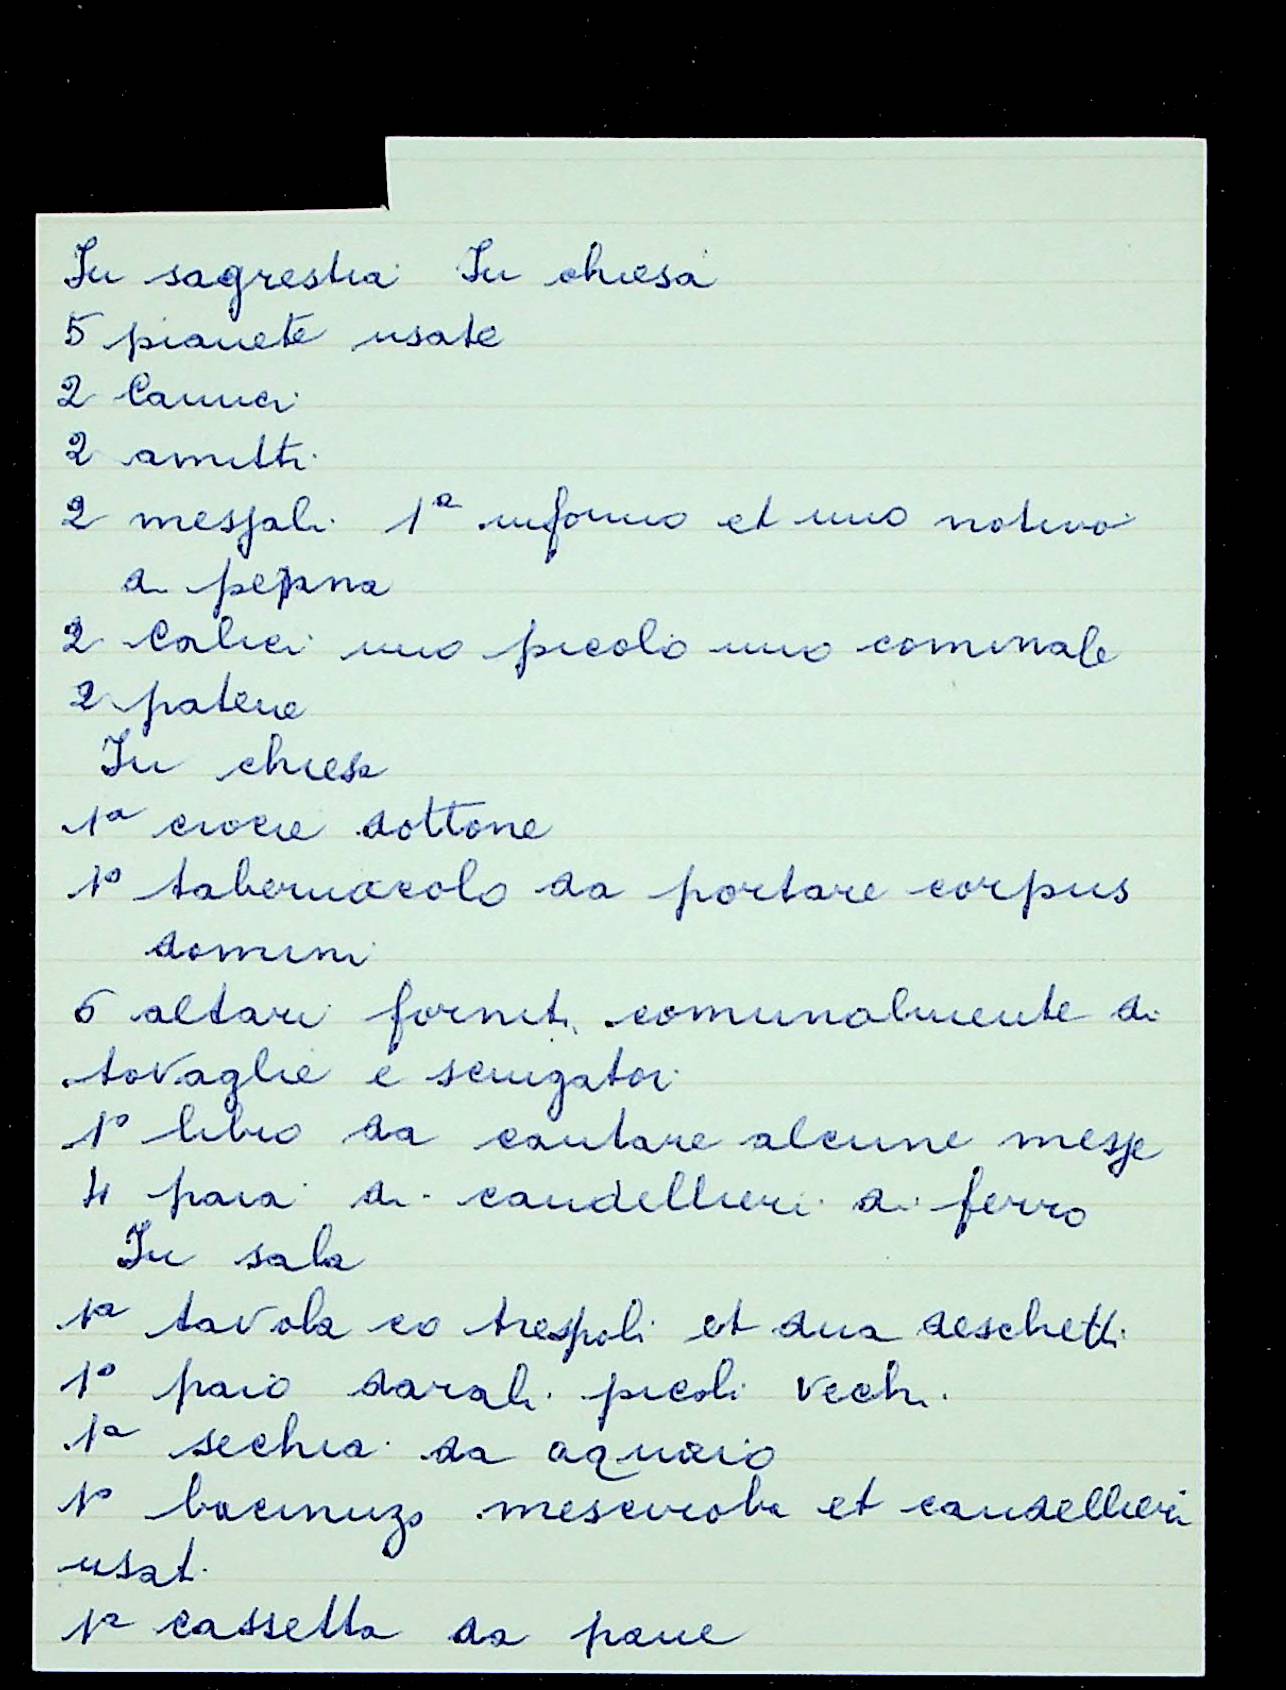 In sagrestia In chiesa
5 pianete usate
2 Camici
2 amitti
2 messali 1ª in forma et uno notivo
di penna
2 Calici uno picolo uno cominale
2 patene
In chiesa
1ª crocie dottone
1º tabernacolo da portare corpus
domini
6 altari forniti comunalmente di
tovaglie e sciugatoi
1º libro da cantare alcune messe
4 paia di candellieri di ferro
In sala
1ª tavola co trespoli et dua deschetti
1º paio darali picoli vechi
1ª sechia da aquaio
1º bacinuzo mesciroba et candellieri
usati
1ª cassetta da pane